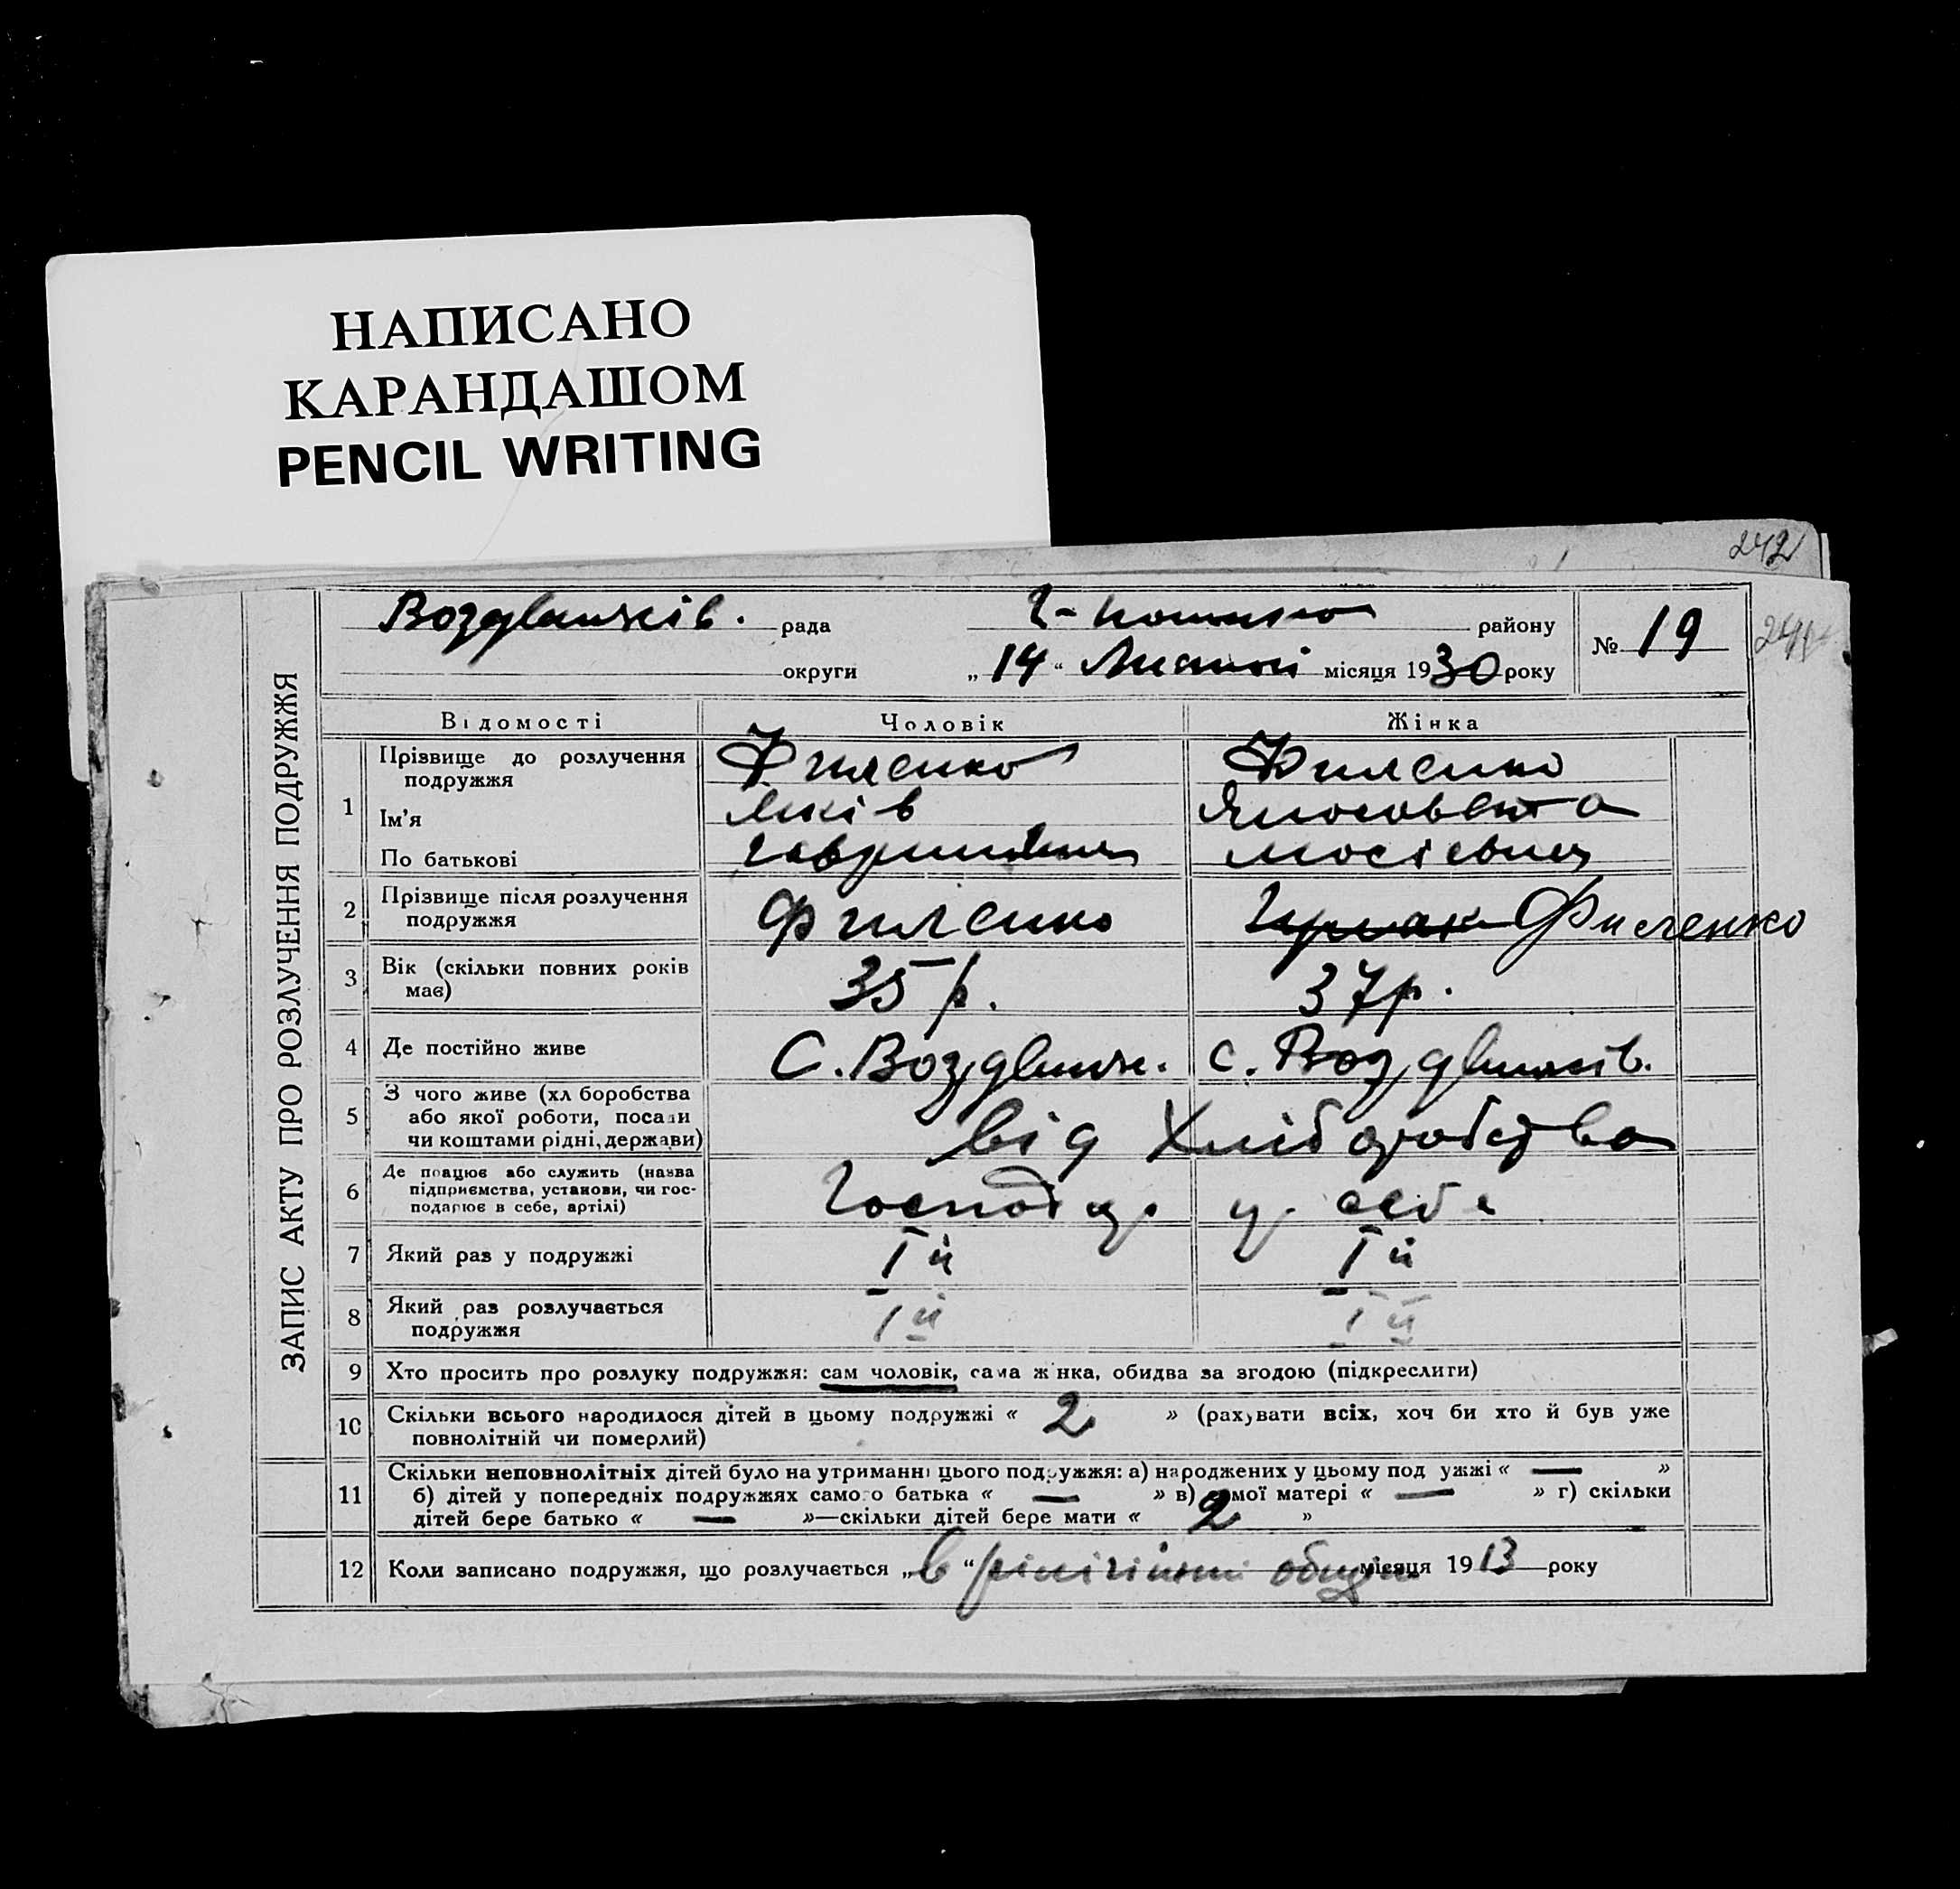 НАПИСАНО
КАРАНДАШОМ
PENCIL WRITING
242
ЗАПИС АКТУ ПРО РОЗЛУЧЕННЯ ПОДРУЖЖЯ
Воздвижків. рада району № 19
округи „14“ місяця 1930 року
Відомості Чоловік Жінка
1 Прізвище до розлучення подружжя Филенко Филенко
Ім'я Яків
По батькові Мосієвна
2 Прізвище після розлучення подружжя Филенко Филенко
3 Вік (скільки повних років має) 35 р. 37 р.
4 Де постійно живе С. Воздвиж. с. Воздвижків.
5 З чого живе (хл боробства
або якої роботи, посади
чи коштами рідні, держави) від Хліборобства
6 Де працює або служить (назва
підприємства, установи, чи гос-
подарює в себе, артілі) Господар. у себе
7 Який раз у подружжі І й І й
8 Який раз розлучається
подружжя І й І й
9 Хто просить про розлуку подружжя: сам чоловік, сама жінка, обидва за згодою (підкреслити)
10 Скільки всього народилося дітей в цьому подружжі « 2 » (рахувати всіх, хоч би хто й був уже
повнолітній чи померлий)
11 Скільки неповнолітніх дітей було на утриманні цього подружжя: а) народжених у цьому под ужжі « — »
б) дітей у попередніх подружжях самого батька « — » в) самої матері « — » г) скільки
дітей бере батько « — »—скільки дітей бере мати « 2 »
12 Коли записано подружжя, що розлучається „в“ місяця 1913 року